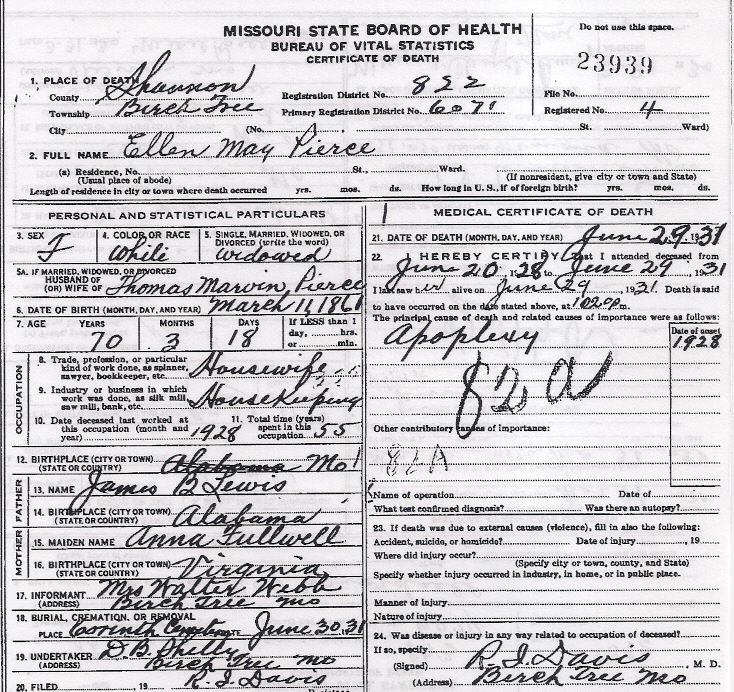 MISSOURI STATE BOARD OF HEALTH
BUREAU OF VITAL STATISTICS
CERTIFICATE OF DEATH
Do not use this space.
23939
1. PLACE OF DEATH
County Shannon
Registration District No. 822
File No.
Township Birch Tree
Primary Registration District No. 6071
Registered No. 4
City (No. St. Ward)
2. FULL NAME Ellen May Pierce
(a) Residence, No. St., Ward.
(Usual place of abode) (If nonresident, give city or town and State)
Length of residence in city or town where death occurred yrs. mos. ds. How long in U. S., if of foreign birth? yrs. mos. ds.
PERSONAL AND STATISTICAL PARTICULARS
3. SEX F
4. COLOR OR RACE White
5. SINGLE, MARRIED, WIDOWED, OR DIVORCED (write the word) Widowed
5A. IF MARRIED, WIDOWED, OR DIVORCED
HUSBAND OF
(OR) WIFE OF Thomas Marvin Pierce
6. DATE OF BIRTH (MONTH, DAY, AND YEAR) March 11, 1861
7. AGE YEARS MONTHS DAYS If LESS than 1
day, hrs.
or min.
70 3 18
OCCUPATION
8. Trade, profession, or particular
kind of work done, as spinner,
sawyer, bookkeeper, etc. Housewife
9. Industry or business in which
work was done, as silk mill,
saw mill, bank, etc. Housekeeping
10. Date deceased last worked at
this occupation (month and
year) 1928
11. Total time (years)
spent in this
occupation 55
12. BIRTHPLACE (CITY OR TOWN)
(STATE OR COUNTRY) Alabama Mo
FATHER
13. NAME James B Lewis
14. BIRTHPLACE (CITY OR TOWN)
(STATE OR COUNTRY) Alabama
MOTHER
15. MAIDEN NAME Anna Fullwell
16. BIRTHPLACE (CITY OR TOWN)
(STATE OR COUNTRY) Virginia
17. INFORMANT Mrs Walter Webb
(ADDRESS) Birch Tree Mo
18. BURIAL, CREMATION, OR REMOVAL
PLACE Corinth DATE June 30, 31
19. UNDERTAKER D.B. Shelly
(ADDRESS) Birch Tree Mo
20. FILED , 19 R. I. Davis
MEDICAL CERTIFICATE OF DEATH
21. DATE OF DEATH (MONTH, DAY, AND YEAR) June 29, 1931
22. I HEREBY CERTIFY, That I attended deceased from
June 20, 1928 to June 29, 1931
I last saw her alive on June 29, 1931. Death is said
to have occurred on the date stated above, at m.
The principal cause of death and related causes of importance were as follows:
Date of onset
Apoplexy 1928
82a
Other contributory causes of importance:
82A
Name of operation Date of
What test confirmed diagnosis? Was there an autopsy?
23. If death was due to external causes (violence), fill in also the following:
Accident, suicide, or homicide? Date of injury , 19
Where did injury occur?
(Specify city or town, county, and State)
Specify whether injury occurred in industry, in home, or in public place.
Manner of injury
Nature of injury
24. Was disease or injury in any way related to occupation of deceased?
If so, specify
(Signed) R. I. Davis, M. D.
(Address) Birch Tree Mo